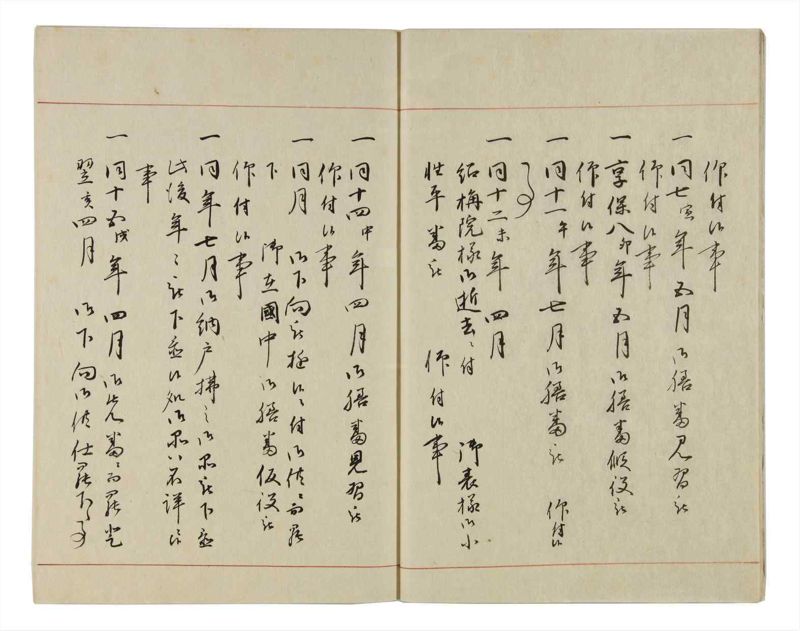 仰付候事
一 同七寅年五月御膳番見習被
仰付候事
一 享保八卯年五月御膳番仮役被
仰付候事
一 同十一午年七月御膳番被 仰付候
事
一 同十二未年四月
梅院様御逝去ニ付 御表様御小
性平番被 仰付候事
一 同十四申年四月御膳番見習被
仰付候事
一 同月 御下向被 候ニ付御供ニ而罷
下 御在國中御膳番仮役被
仰付候事
一 同年七月御納戸拂之御品被下置
此後年々被下置候処御品八不詳候
事
一 同十五戌年四月 御先番ニ而罷登
翌亥四月 御下向御供仕罷下候事